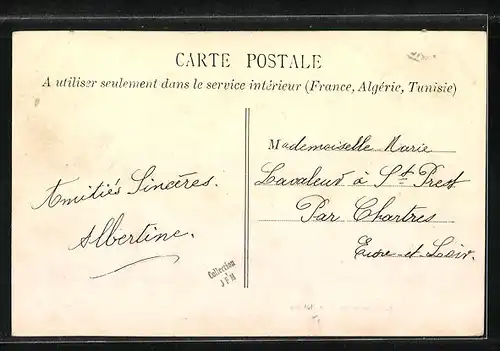 CARTE POSTALE
A utiliser seulement dans le service intérieur (France, Algérie, Tunisie)
Amitiés Sincères.
Albertine.
Collection
J F N
Mademoiselle Marie
à St Prest
Par Chartres
Eure-et-Loir.